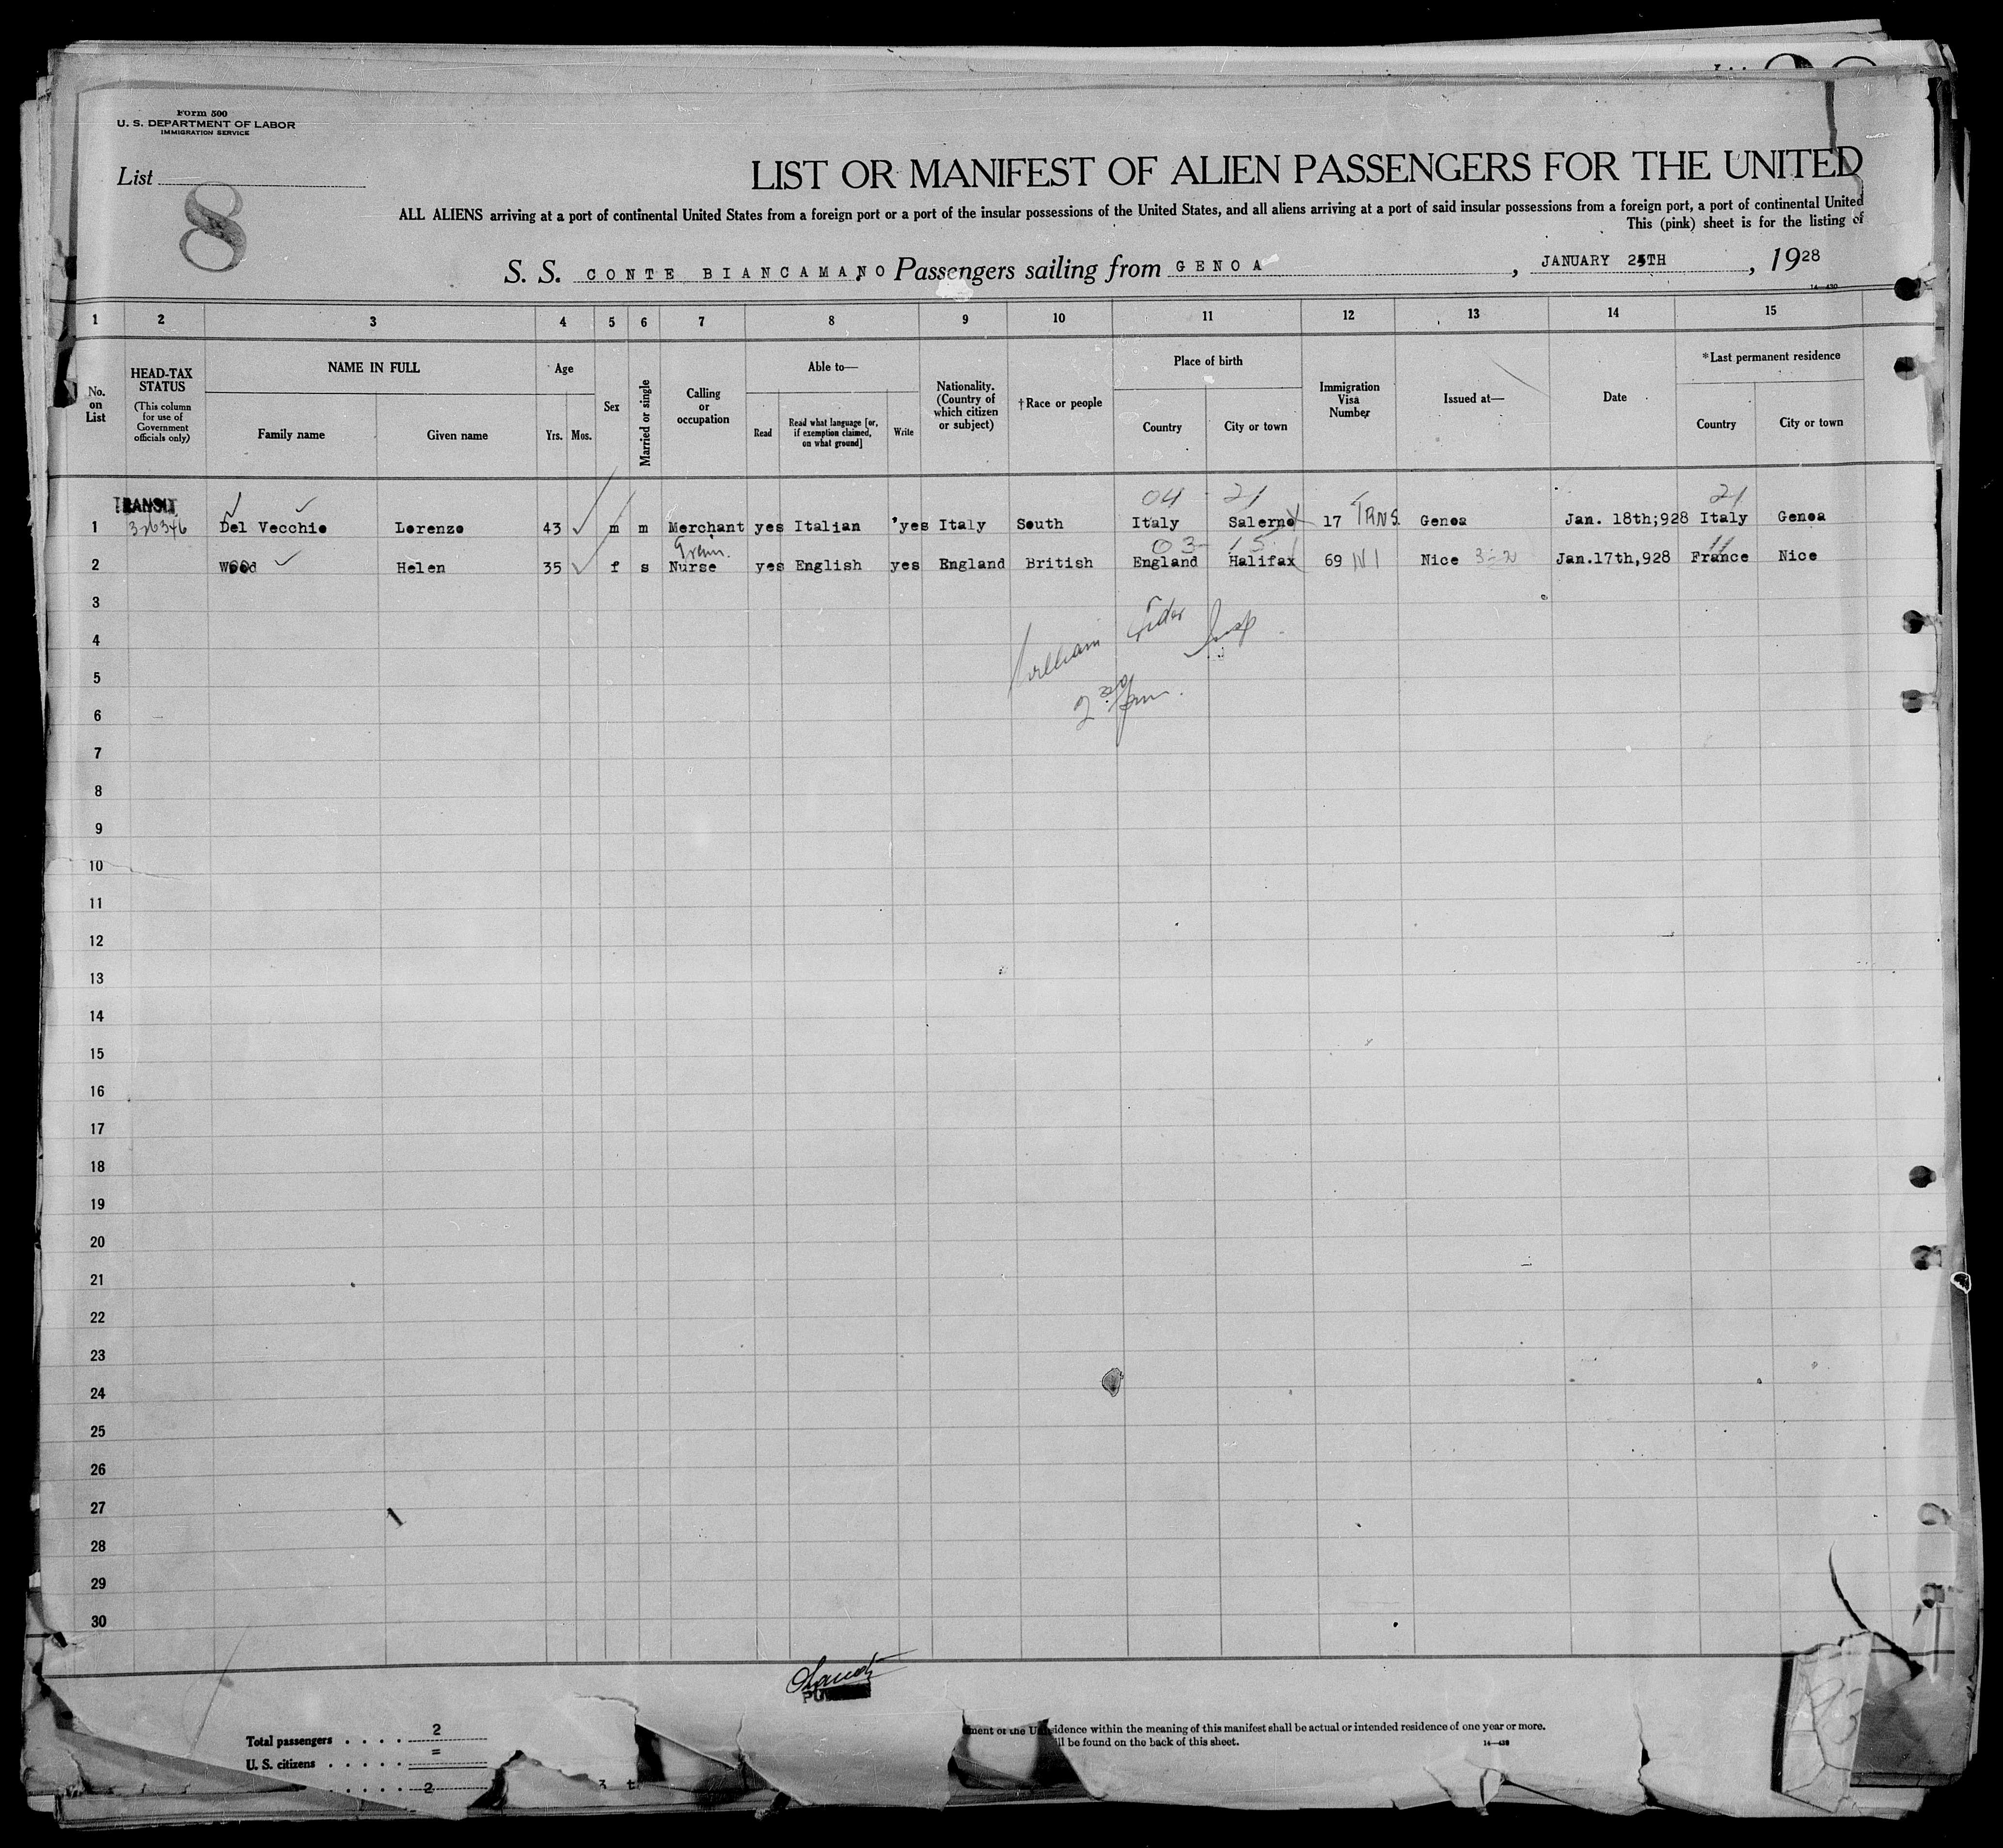 Form 500
U. S. DEPARTMENT OF LABOR
IMMIGRATION SERVICE
List
8
LIST OR MANIFEST OF ALIEN PASSENGERS FOR THE UNITED
ALL ALIENS arriving at a port of continental United States from a foreign port or a port of the insular possessions of the United States, and all aliens arriving at a port of said insular possessions from a foreign port, a port of continental United
This (pink) sheet is for the listing of
S. S. CONTE BIANCAMANO, Passengers sailing from GENOA, JANUARY 25TH, 1928
14—430
1 2 3 4 5 6 7 8 9 10 11 12 13 14 15
No. on List
HEAD-TAX STATUS
(This column for use of Government officials only)
NAME IN FULL
Family name
Given name
Age
Yrs. Mos.
Sex
Married or single
Calling or occupation
Able to—
Read
Read what language [or, if exemption claimed, on what ground]
Write
Nationality. (Country of which citizen or subject)
†Race or people
Place of birth
Country
City or town
Immigration Visa Number
Issued at—
Date
*Last permanent residence
Country
City or town
TRANSIT
04 21 21
1 326346 Del Vecchio Lorenzo 43 m m Merchant yes Italian yes Italy South Italy Salerno 17 TRNS. Genoa Jan. 18th;928 Italy Genoa
03 15 11
2 Wood Helen 35 f s Nurse yes English yes England British England Halifax 69 Nice 3-2 Jan.17th,928 France Nice
3
4
William Insp
5
6
7
8
9
10
11
12
13
14
15
16
17
18
19
20
21
22
23
24
25
26
27
28
29
30
Total passengers . . . . 2
U. S. citizens . . . . . =
. . . . 2
ment of the U
sidence within the meaning of this manifest shall be actual or intended residence of one year or more.
ll be found on the back of this sheet.
14—430